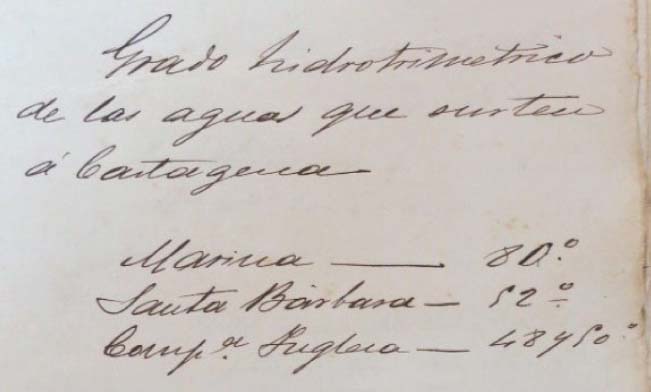 Grado hidrotrimetrico
de las aguas que surten
á Cartagena
Marina — 80.º
Santa Bárbara — 52º
Comp.ª Inglesa — 48 y 50º